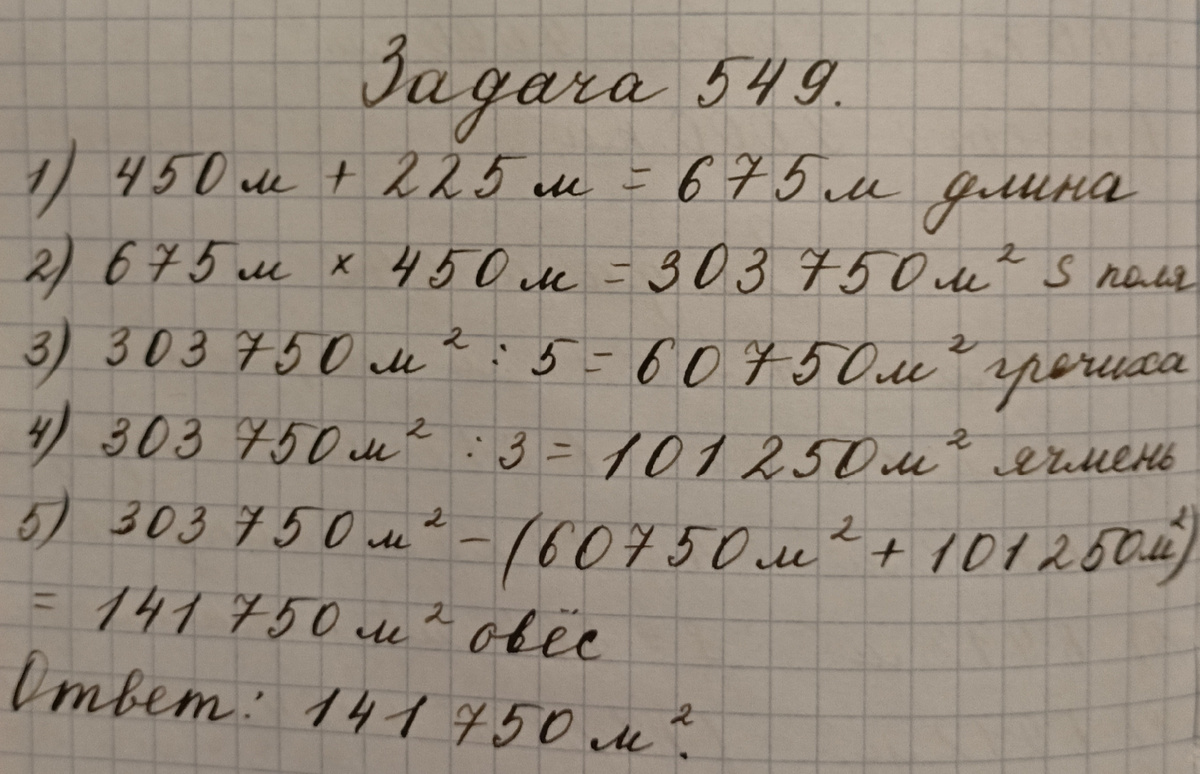 Задача 549.
1) 450 м + 225 м = 675 м длина
2) 675 м × 450 м = 303 750 м² S поля
3) 303 750 м² : 5 = 60 750 м² гречиха
4) 303 750 м² : 3 = 101 250 м² ячмень
5) 303 750 м² – (60750 м² + 101250м²)
= 141 750 м² овёс
Ответ: 141 750 м².